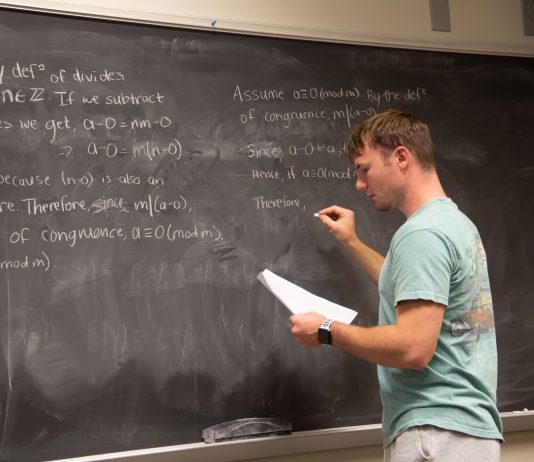 def² of divides
n∈ℤ. If we subtract
we get, a-0 = nm-0
⇒ a-0 = m(n-0)
because (n-0) is also an
Therefore, since m|(a-0),
of congruence, a≡0(mod m).
mod m).
Assume a≡0(mod m). By the defⁿ
of congruence, m|(a-
Since, a-0 = a,
Hence, if a≡0(mod
Therefore,